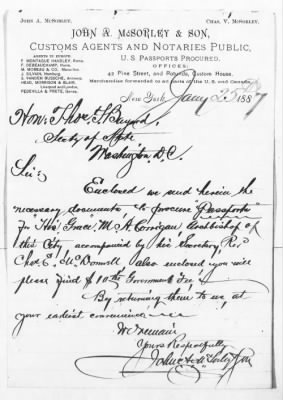 JOHN A. McSORLEY.
CHAS. V. McSORLEY.
JOHN A. McSORLEY & SON,
CUSTOMS AGENTS AND NOTARIES PUBLIC,
U. S. PASSPORTS PROCURED.
AGENTS IN EUROPE
F. MONTAGUE HANDLEY, Rome.
F. DEBEAUCHAMP, Paris.
OFFICES:
42 Pine Street, and Rotunda, Custom House.
Merchandise forwarded to all parts of the U.S. and Canada.
HEAD, MORRISON & BLAIR,
Liverpool and London.
New York, Jany 25th 1887
Hon. Thos. F. Bayard,
Secty of State
Washington D.C.
Sir:
Enclosed we send herein the
necessary documents, to procure "Passports"
for "His Grace" M. A. Corrigan, Archbishop of
this City, accompanied by his Secretary, Rev
Chas. E. McDonnell also enclosed you will
please find $10 the Government Fee.
By returning them to us, at
your earliest convenience
We remain
Yours Respectfully
John A. McSorley & Son